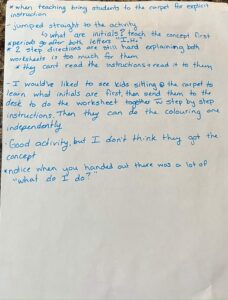 * when teaching bring students to the carpet for explicit
instruction
- jumped straight to the activity
↳ what are initials? teach the concept first
* periods to after both letters "I.H."
* 2 step directions are still hard explaining both
worksheets is too much for them
* they can't read the instructions & read it to them
- I would've liked to see kids sitting @ the carpet to
learn what initials are first, then send them to the
desk to do the worksheet together w step by step
instructions. Then they can do the colouring one
independently
- Good activity, but I don't think they got the
concept
* notice when you handed out there was a lot of
"what do I do?"